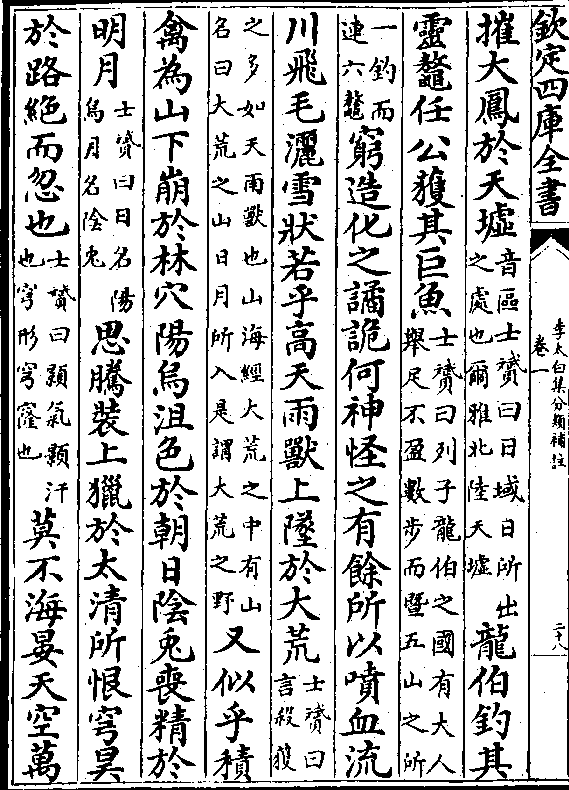 欽定四庫全書
李太白集分類補註
卷一
二十八
摧大鳳於天墟音區士贇曰日域日所出之處也爾雅北陸天墟龍伯釣其
靈鼇任公獲其巨魚士贇曰列子龍伯之國有大人舉足不盈數步而暨五山之所
一釣而連六鼇窮造化之譎詭何神怪之有餘所以噴血流
川飛毛灑雪狀若乎高天雨獸上墜於大荒士贇曰言殺獲
之多如天雨獸也山海經大荒之中有山名曰大荒之山日月所入是謂大荒之野又似乎積
禽為山下崩於林穴陽烏沮色於朝日陰兎喪精於
明月士贇曰日名陽烏月名陰兎思騰裝上獵於太清所恨穹昊
於路絶而忽也士贇曰顥氣顥汗也穹形穹窿也莫不海晏天空萬